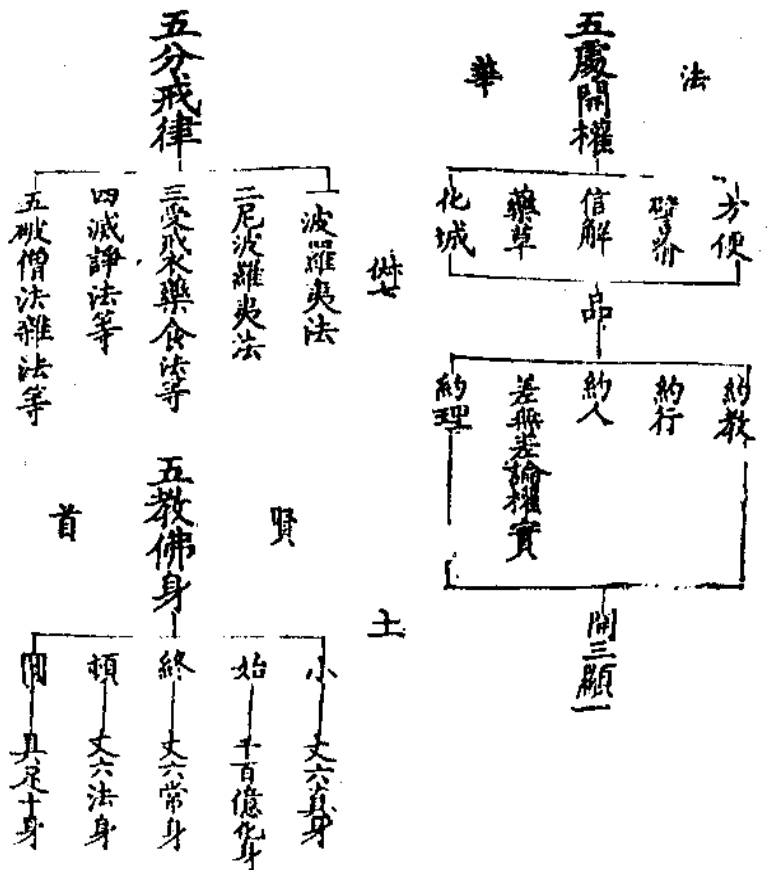 法華
五處開權
方便
譬喻
信解
藥草
化城
品
約教
約行
約人
差無差論權實
約理
開三顯一
五分戒律
一波羅夷法
二尼波羅夷法
三受戒衣藥食法等
四滅諍法等
五破僧法雜法等
賢首
五教佛身
小
丈六真身
始
千百億化身
終
丈六常身
頓
丈六法身
圓
具足十身
土